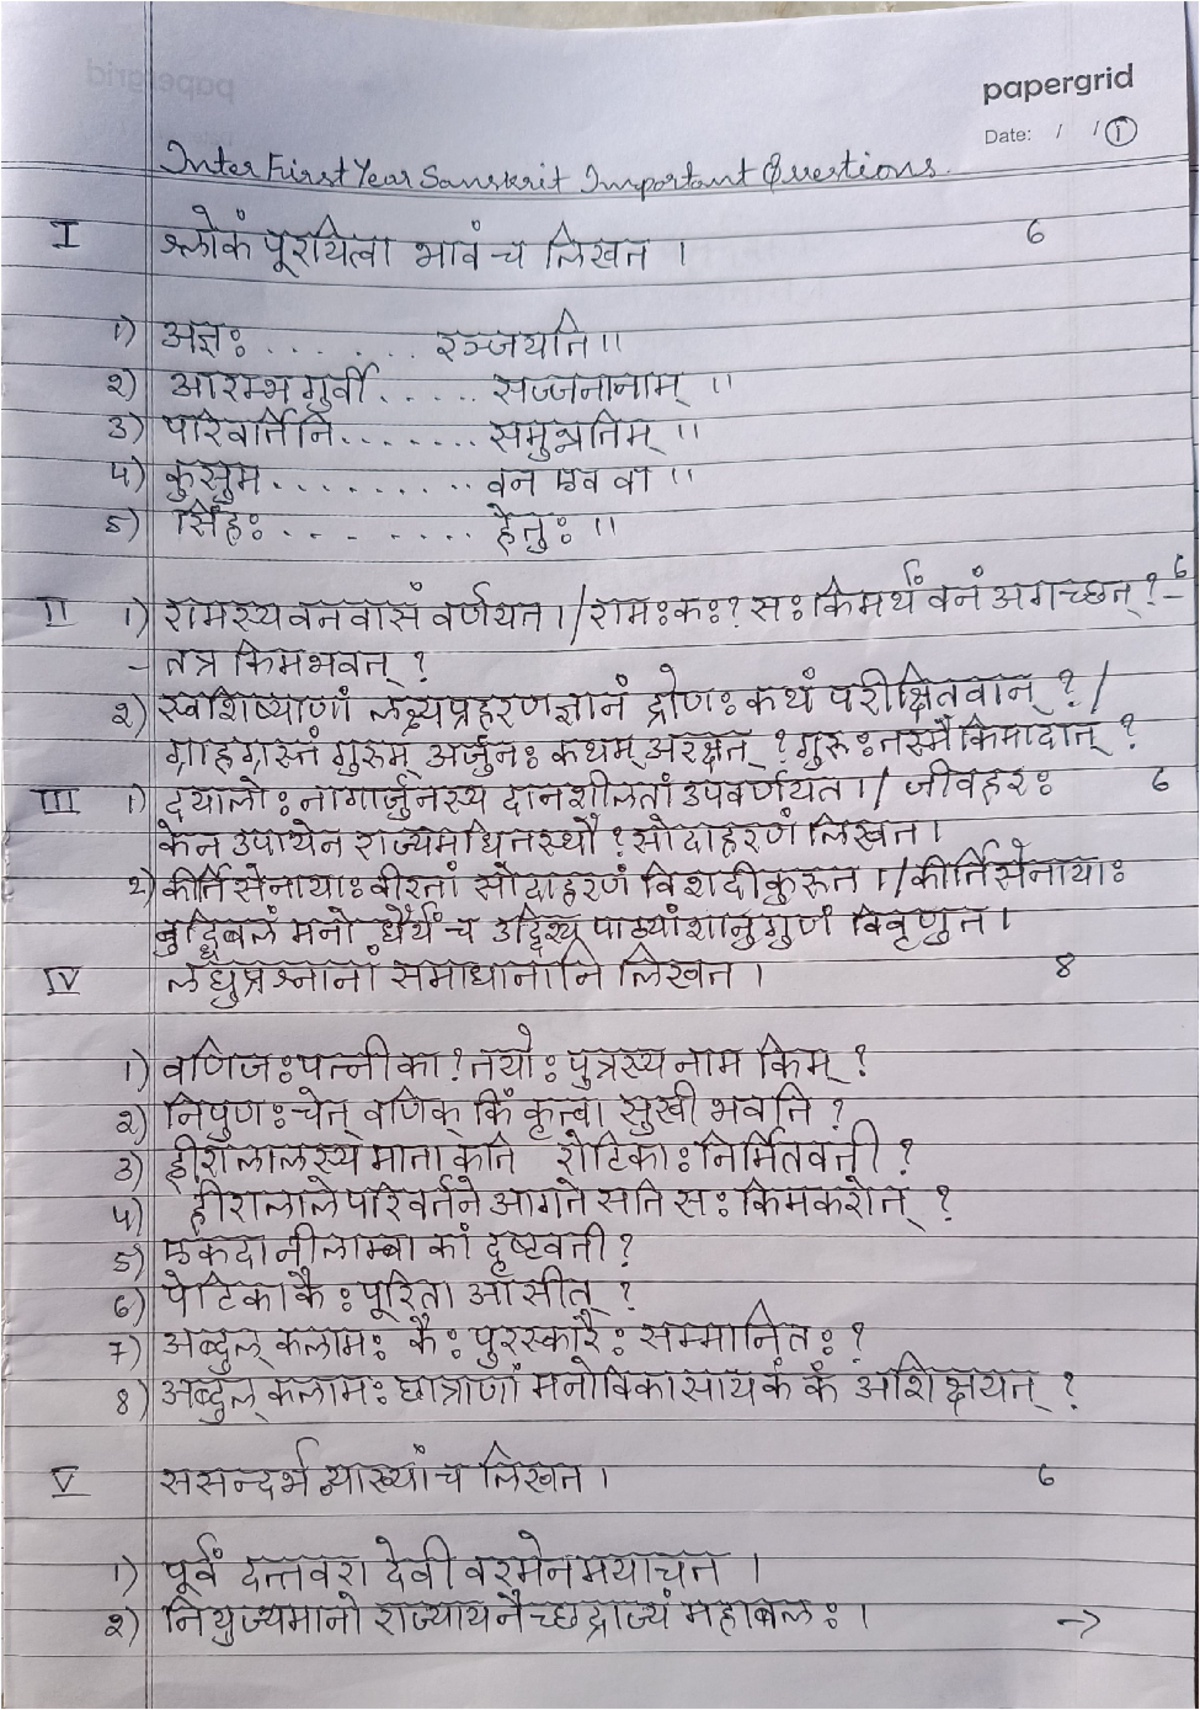 papergrid
Date: / / ①
Inter First Year Sanskrit Important Questions.
I श्लोकं पूरयित्वा भावं च लिखत । 6
1) अज्ञः ....... रञ्जयति ॥
२) आरम्भगुर्वी ...... सज्जनानाम् ॥
3) परिवर्तिनि ........ समुन्नतिम् ॥
4) कुसुम .......... वन एव वा ॥
5) सिंहः ........ हेतुः ॥
II 1) रामस्य वनवासं वर्णयत । / रामः कः ? सः किमर्थं वनं अगच्छत् ? - 6
- तत्र किमभवत् ?
२) स्वशिष्याणां लक्ष्यप्रहरणज्ञानं द्रोणः कथं परीक्षितवान् ? /
ग्राहग्रस्तं गुरुम् अर्जुनः कथम् अरक्षत् ? गुरुः तस्मै किमादात् ?
III 1) दयालोः नागार्जुनस्य दानशीलतां उपवर्णयत । / जीवहरः 6
केन उपायेन राज्यमधितस्थौ ? सोदाहरणं लिखत ।
२) कीर्तिसेनायाः वीरतां सोदाहरणं विशदीकुरुत । / कीर्तिसेनायाः
बुद्धिबलं मनोधैर्यं च उद्दिश्य पाठ्यांशानुगुणं विवृणुत ।
IV लघुप्रश्नानां समाधानानि लिखत । 8
1) वणिजः पत्नी का ? तयोः पुत्रस्य नाम किम् ?
२) निपुणः चेत् वणिक् किं कृत्वा सुखी भवति ?
3) हीरालालस्य माता कति रोटिकाः निर्मितवती ?
4) हीरालाले परिवर्तने आगते सति सः किमकरोत् ?
5) एकदा नीलाम्बा कां दृष्टवती ?
6) पेटिका कैः पूरिता आसीत् ?
7) अब्दुल् कलामः कैः पुरस्कारैः सम्मानितः ?
8) अब्दुल् कलामः छात्राणां मनोविकासाय कं कं अशिक्षयत् ?
V ससन्दर्भव्याख्यां च लिखत । 6
1) पूर्वं दत्तवरा देवी वरमेनमयाचत ।
२) नियुज्यमानो राज्याय नैच्छद्राज्यं महाबलः । →